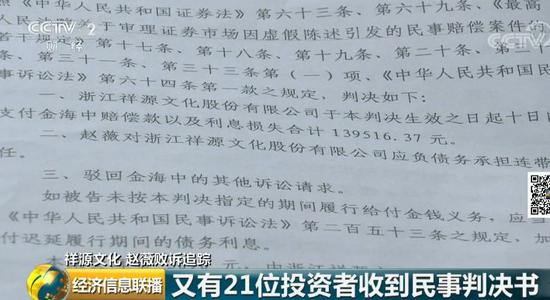 CCTV 2
财经
CCTV
照《中华人民共和国证券法》第六十三条、第六十九条、《最高
关于审理证券市场因虚假陈述引发的民事赔偿案件
若干规定》第十七条、第十八条、第十九条、第二十条、第
条、第三十一条、第三十三条第(一)项、《中华人民共和国民
事诉讼法》第六十四条第一款之规定,判决如下:
一、浙江祥源文化股份有限公司于本判决生效之日起十日
支付金海中赔偿款以及利息损失合计 139516.37 元。
二、赵薇对浙江祥源文化股份有限公司应负债务承担连带
任。
三、驳回金海中的其他诉讼请求。
如被告未按本判决指定的期间履行给付金钱义务,应当
《中华人民共和国民事诉讼法》第二百五十三条之规定,加
付迟延履行期间的债务利息。
祥源文化 赵薇败诉追踪
经济信息联播
又有21位投资者收到民事判决书